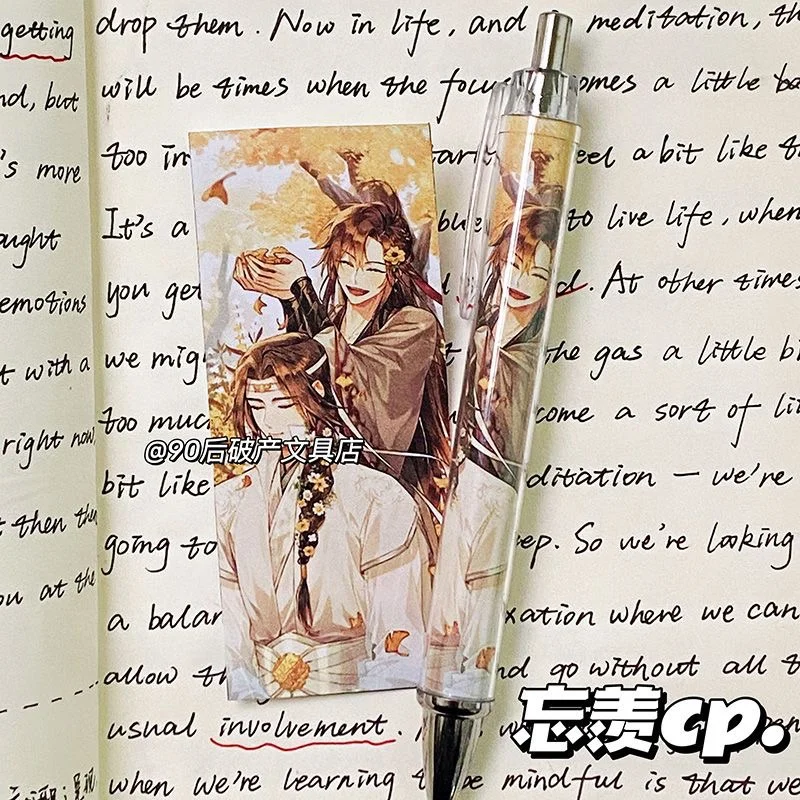 getting
nd, but
's more
aught
emotions
t with a
right now,
t then the
ou at the
drop them. Now in life, and meditation, th
will be times when the focu omes a little ba
too in eel a bit like t
It's a blue to live life, when
you get d. At other times
we mig t the gas a little bi
too muc come a sort of li
bit like ditation — we're
going to ep. So we're looking
a balan xation where we can
allow th nd go without all t
usual involvement.
when we're learning to be mindful is that we
@90后破产文具店
忘羡cp.